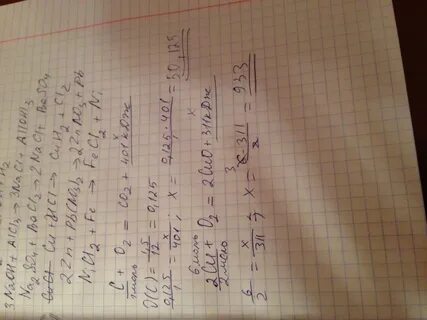 3NaOH + AlCl3 → 3NaCl + Al(OH)3
Na2SO4 + BaCl2 → 2NaCl + BaSO4
Cu + HCl → CuH2 + Cl2
2Zn + Pb(NO3)2 → 2ZnNO3 + Pb
NiCl2 + Fe → FeCl2 + Ni
C + O2 = CO2 + 401 кДж
1 моль
D(C) = 1,5/12 = 0,125
0,125/1 = x/401, x = 0,125·401/1 = 50,125
6 моль x
2Cu + O2 = 2CuO + 311 кДж
2 моль
6/2 = x/311; x = 6·311/2 = 933